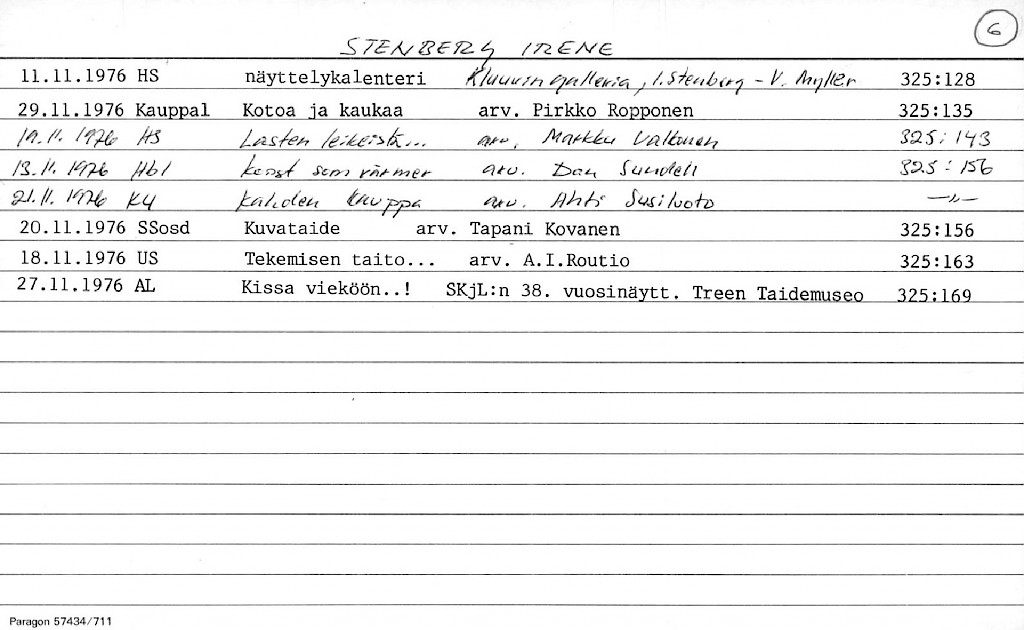 6
STENBERG IRENE
11.11.1976 HS näyttelykalenteri Kluuvin galleria, I.Stenberg - V. Myller 325:128
29.11.1976 Kauppal Kotoa ja kaukaa arv. Pirkko Ropponen 325:135
19.11.1976 HS Lasten leikeistä... arv. Markku Valkonen 325:143
13.11.1976 Hbl konst som värmer arv. Dan Sundell 325:156
21.11.1976 KU kahden kauppa arv. Ahti Susiluoto —"—
20.11.1976 SSosd Kuvataide arv. Tapani Kovanen 325:156
18.11.1976 US Tekemisen taito... arv. A.I.Routio 325:163
27.11.1976 AL Kissa vieköön..! SKjL:n 38. vuosinäytt. Treen Taidemuseo 325:169
Paragon 57434/711